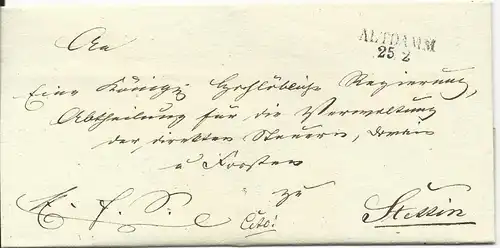 An
ALTDAMM
25 2
Eine Königl. Hochlöbliche Regierung,
Abtheilung für die Verwaltung
der direkten Steuern, Domain
u Forsten
zu
H. J. S.
Cito!
Stettin